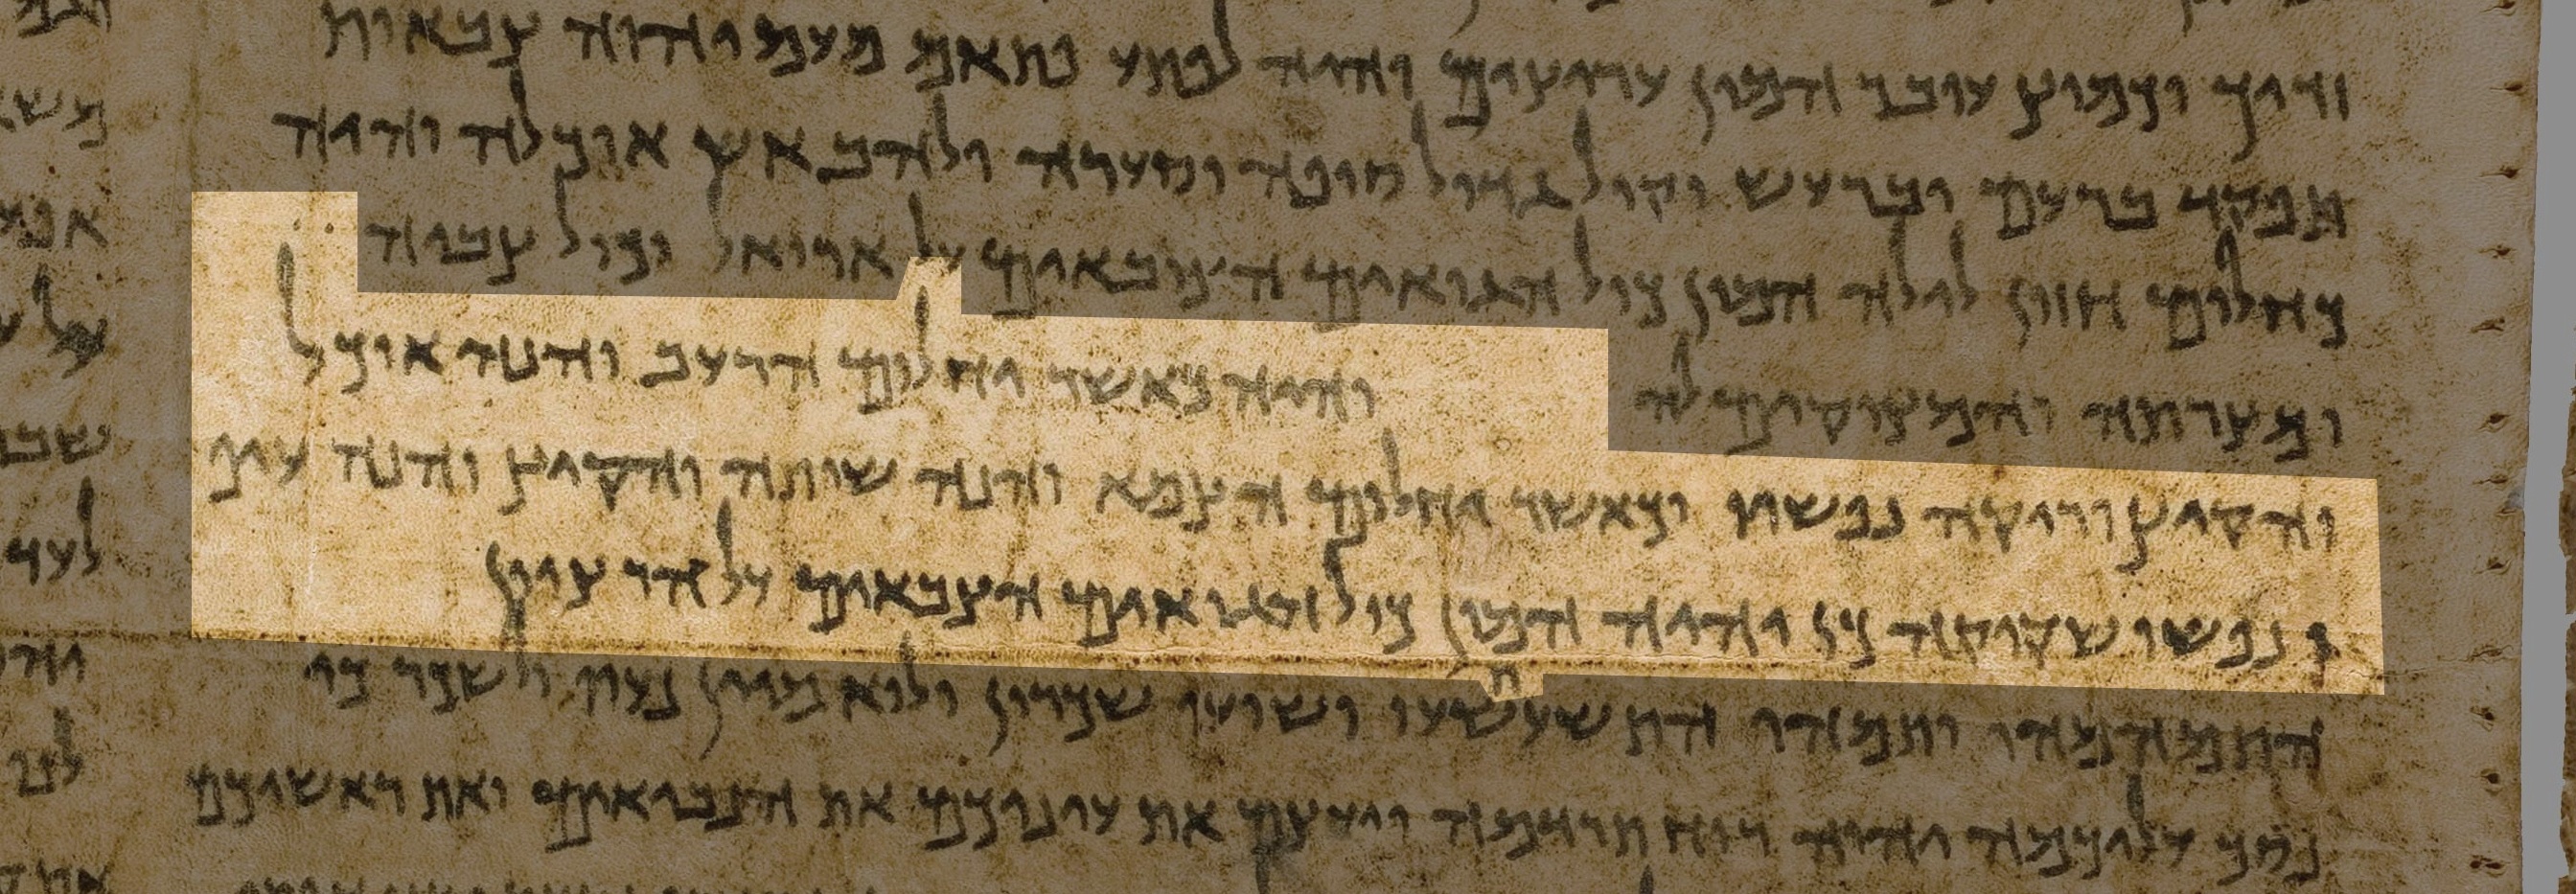 זדיך וכמוץ עובר המון עריצים והיה לפתע פתאם מעם יהוה צבאות
תפקד ברעם וברעש וקול גדול סופה וסערה ולהב אש אוכלה והיה
כחלום חזון לילה המון כול הגואים הצובאים על אריאל וכול
ומצרתה והמציקים לה והיה כאשר יחלום הרעב והנה אוכל
והקיץ וריקה נפשו וכאשר יחלום הצמא והנה שותה והקיץ והנה עיף
ונפשו שקוקה כן יהיה המון כול הגואים הצבאים על הר ציון
התמהמהו ותמהו התשעשעו ושועו שכרון ולוא מיין
נסך עליכמה יהוה רוח תרדמה ויעצם את עיניכם את הנביאים ואת ראשיכם